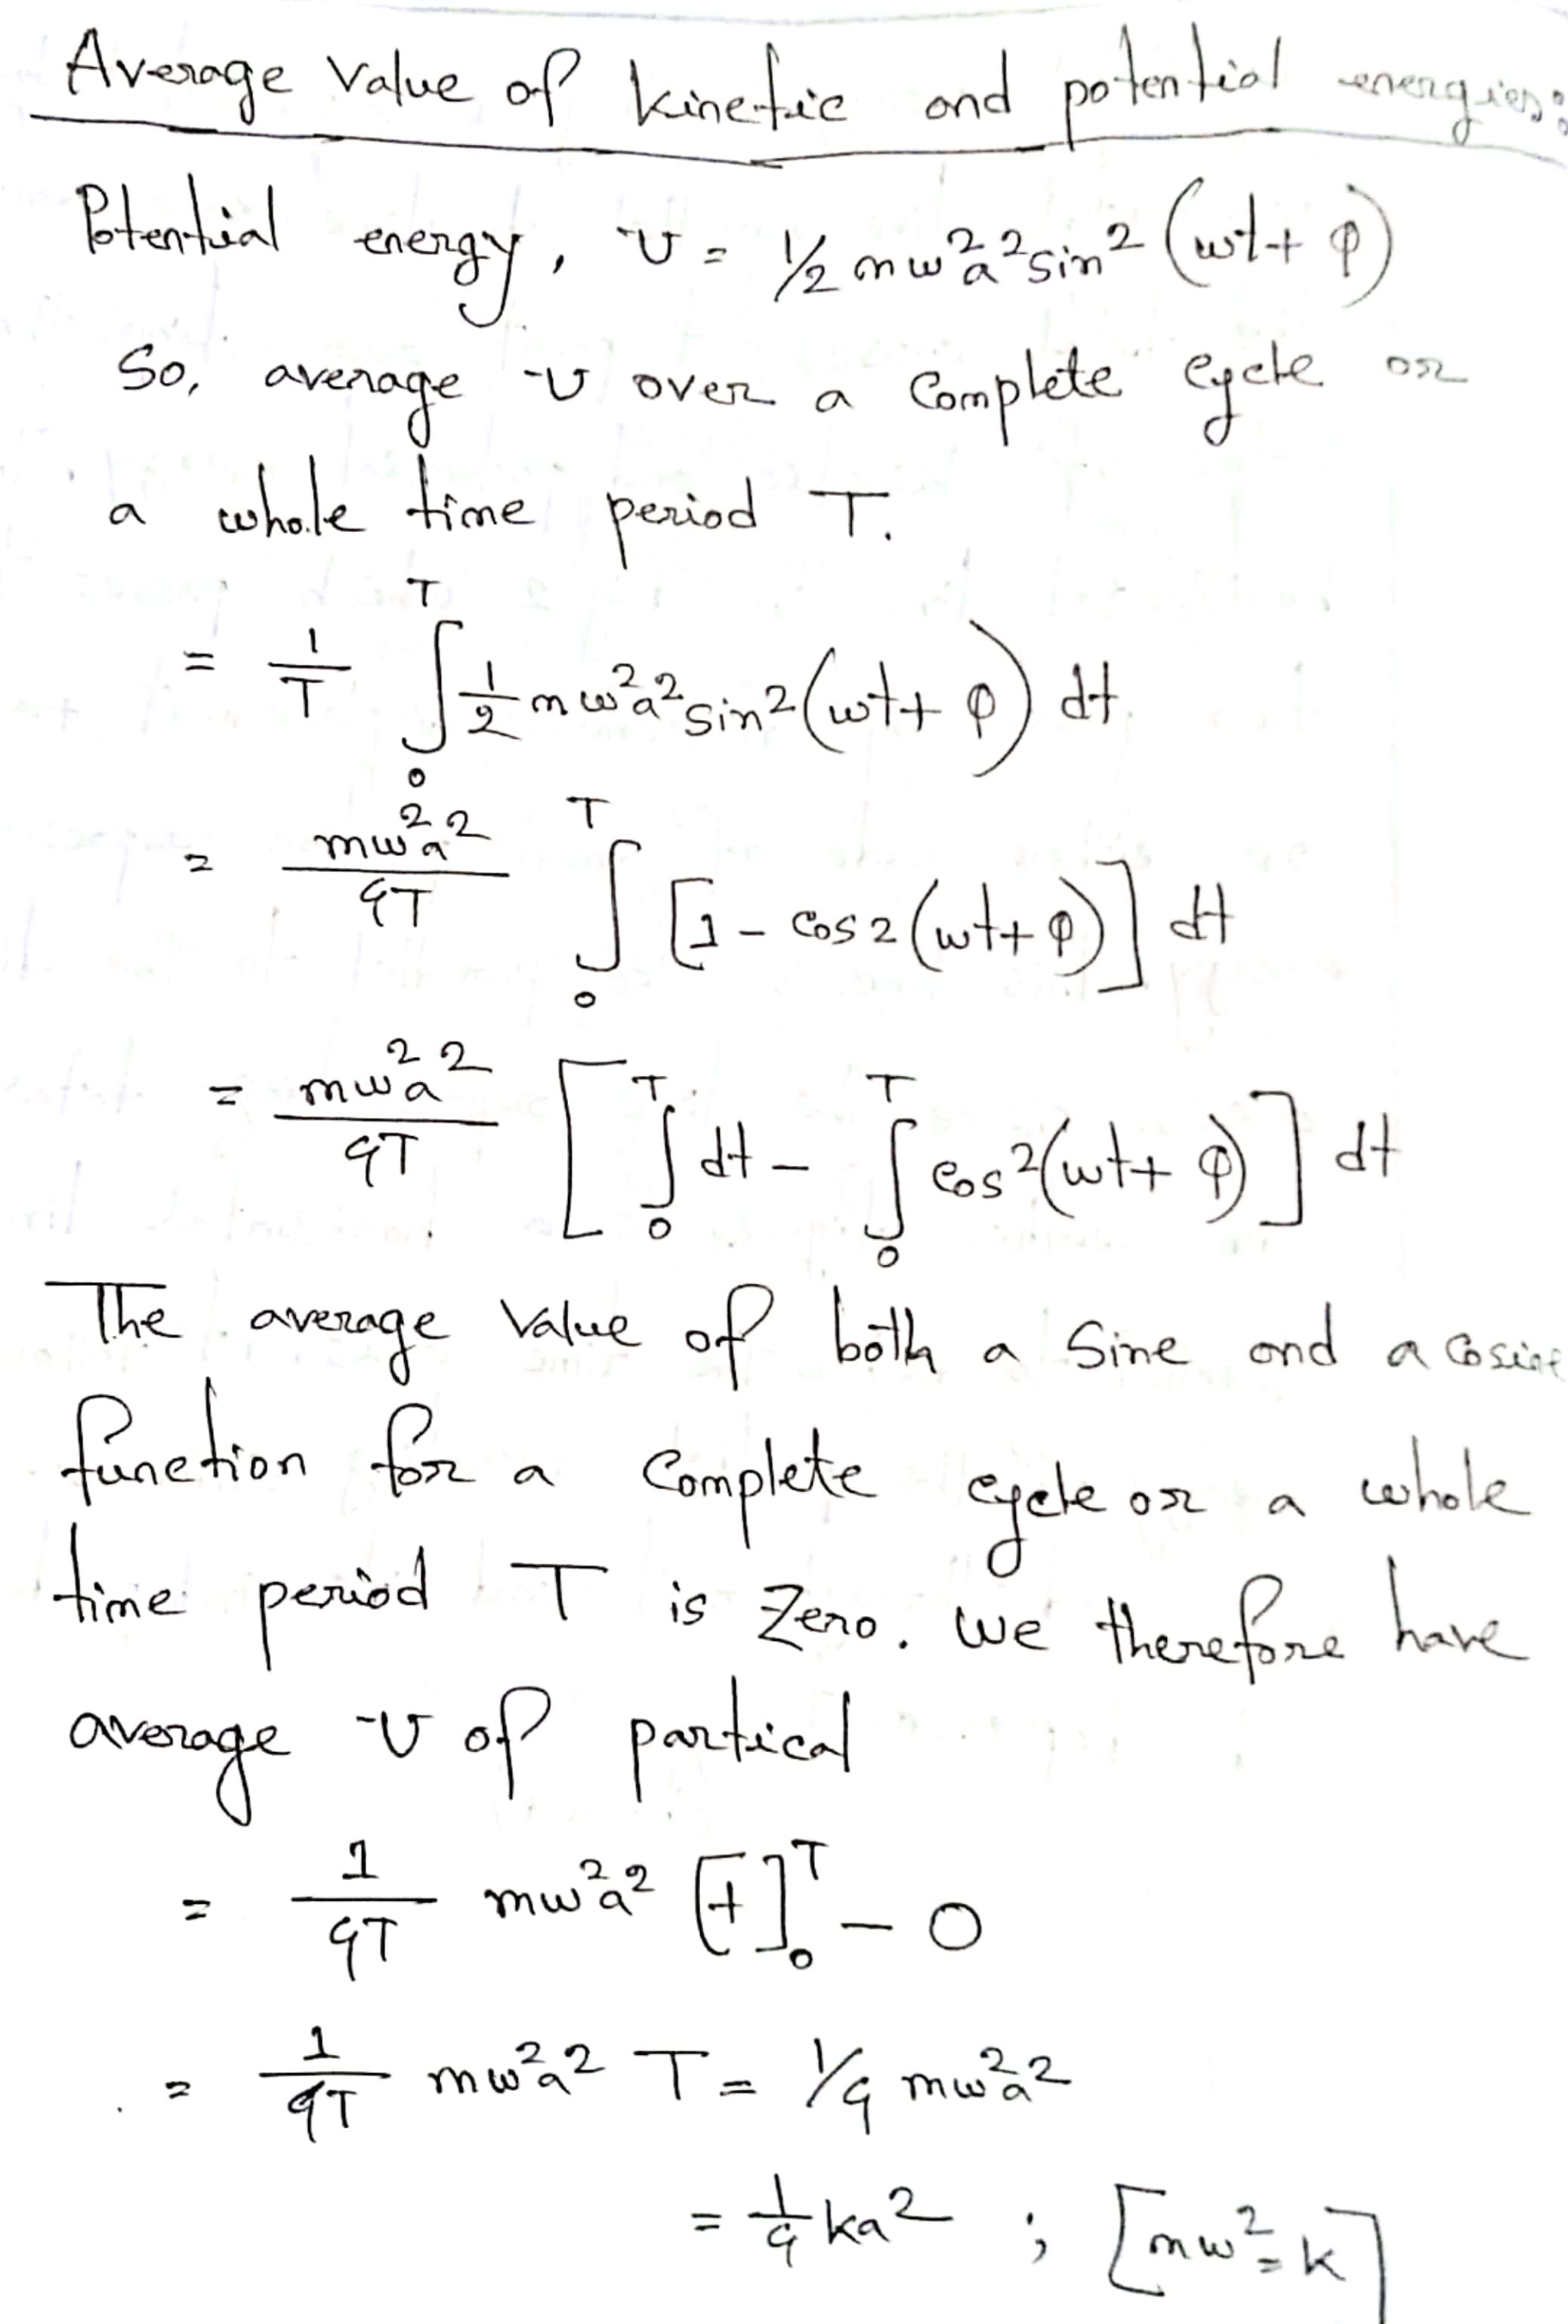 Average Value of kinetic and potential energies:
Potential energy, U = 1/2 mω²a² sin² (ωt + φ)
So, average U over a Complete cycle or
a whole time period T.
= 1/T ∫₀ᵀ 1/2 mω²a² sin² (ωt + φ) dt
= mω²a²/4T ∫₀ᵀ [1 - cos 2 (ωt + φ)] dt
= mω²a²/4T [∫₀ᵀ dt - ∫₀ᵀ cos ²(ωt + φ)] dt
The average Value of both a Sine and a Cosine
function for a Complete cycle or a whole
time period T is Zero. We therefore have
average U of partical
= 1/4T mω²a² [t]₀ᵀ - 0
= 1/4T mω²a² T = 1/4 mω²a²
= 1/4 ka² ; [mω² = k]